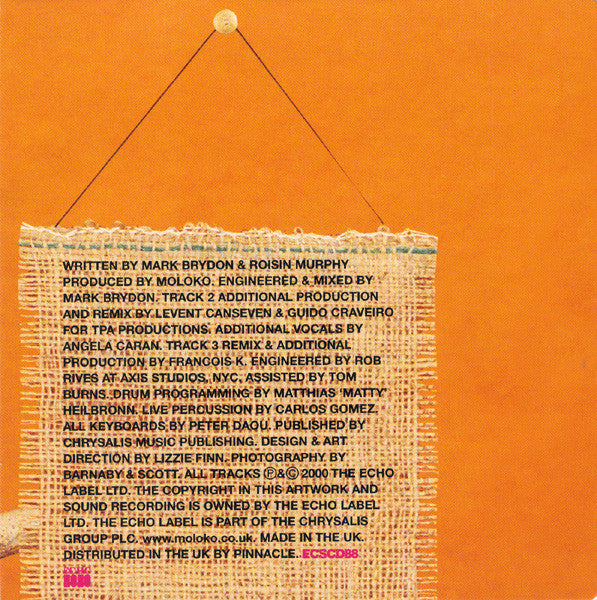 WRITTEN BY MARK BRYDON & ROISIN MURPHY
PRODUCED BY MOLOKO. ENGINEERED & MIXED BY
MARK BRYDON. TRACK 2 ADDITIONAL PRODUCTION
AND REMIX BY LEVENT CANSEVEN & GUIDO CRAVEIRO
FOR TPA PRODUCTIONS. ADDITIONAL VOCALS BY
ANGELA CARAN. TRACK 3 REMIX & ADDITIONAL
PRODUCTION BY FRANCOIS K. ENGINEERED BY ROB
RIVES AT AXIS STUDIOS, NYC. ASSISTED BY TOM
BURNS. DRUM PROGRAMMING BY MATTHIAS 'MATTY'
HEILBRONN. LIVE PERCUSSION BY CARLOS GOMEZ.
ALL KEYBOARDS BY PETER DAOU. PUBLISHED BY
CHRYSALIS MUSIC PUBLISHING. DESIGN & ART
DIRECTION BY LIZZIE FINN. PHOTOGRAPHY BY
BARNABY & SCOTT. ALL TRACKS ℗&© 2000 THE ECHO
LABEL LTD. THE COPYRIGHT IN THIS ARTWORK AND
SOUND RECORDING IS OWNED BY THE ECHO LABEL
LTD. THE ECHO LABEL IS PART OF THE CHRYSALIS
GROUP PLC. www.moloko.co.uk. MADE IN THE UK.
DISTRIBUTED IN THE UK BY PINNACLE. ECSCD88